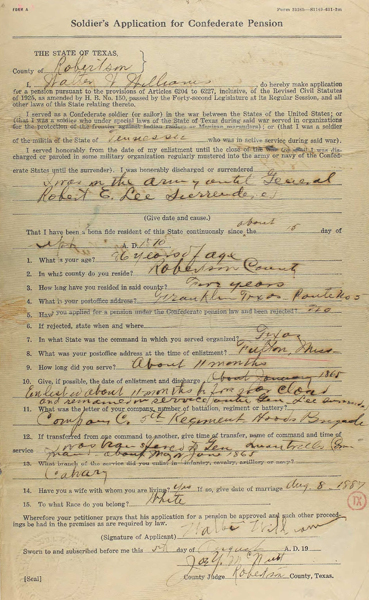 FORM A
Soldier's Application for Confederate Pension
THE STATE OF TEXAS,
County of Robertson
I, Walter W. Williams, do hereby make application
for a pension pursuant to the provisions of Articles 6204 to 6227, inclusive, of the Revised Civil Statutes
of 1925, as amended by H. B. No. 150, passed by the Forty-second Legislature at its Regular Session, and all
other laws of this State relating thereto.
I served as a Confederate soldier (or sailor) in the war between the States of the United States; or
(that I was a soldier who under special laws of the State of Texas during said war served in organizations
for the protection of the frontier against Indian raids or Mexican marauders) or (that I was a soldier
of the militia of the State of who was in active service during said war).
I served honorably from the date of my enlistment until the close of the war, or until I was dis-
charged or paroled in some military organization regularly mustered into the army or navy of the Confed-
erate States until the surrender. I was honorably discharged or surrendered
I was in the army until General
Robert E. Lee Surrended
(Give date and cause.)
That I have been a bona fide resident of this State continuously since the about day of
A. D. 1870
1. What is your age? years of age
2. In what county do you reside? Robertson County
3. How long have you resided in said county? years
4. What is your postoffice address? Franklin Texas Route No 5
5. Have you applied for a pension under the Confederate pension law and been rejected? No
6. If rejected, state when and where
7. In what State was the command in which you served organized? Texas
8. What was your postoffice address at the time of enlistment? Miss
9. How long did you serve? About 11 months
10. Give, if possible, the date of enlistment and discharge
Enlisted about 11 months before war closed
and remained in service until Gen Lee surrender
11. What was the letter of your company, number of battalion, regiment or battery?
Company C. 5th Regiment Hoods Brigade
12. If transferred from one command to another, give time of transfer, name of command and time of
service
about May or June 1865
13. What branch of the service did you enlist in—infantry, cavalry, artillery or navy?
Calvary
14. Have you a wife with whom you are living? yes If so, give date of marriage Aug. 8, 1887
15. To what Race do you belong? White
Wherefore your petitioner prays that his application for a pension be approved and such other pro-
ceedings be had in the premises as are required by law.
(Signature of Applicant) Walter William
Sworn to and subscribed before me this 5th day of August A. D. 19
County Judge Robertson County, Texas.
[Seal]